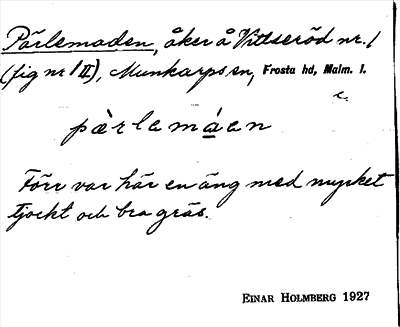 Pärlemaden, åker å Vittseröd nr. 1
(fig nr 1 II), Munkarps sn, Frosta hd, Malm. l.
pæ̀rlemáen
Förr var här en äng med mycket
tjockt och bra gräs.
EINAR HOLMBERG 1927